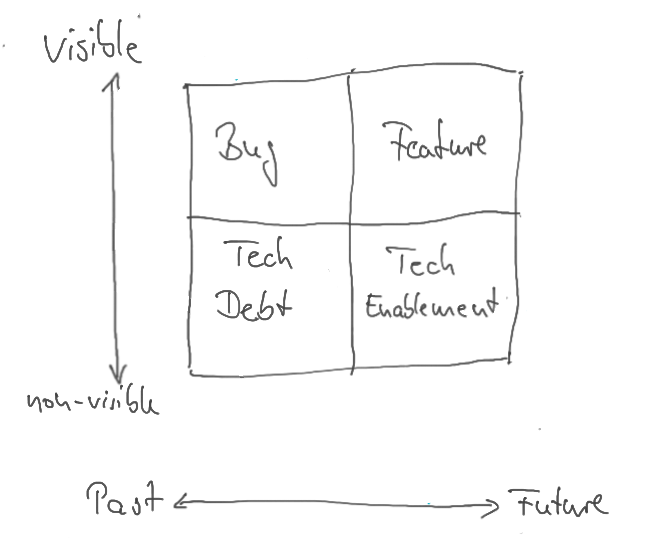 Visible
Bug
Feature
Tech
Debt
Tech
Enablement
non-visible
Past
Future